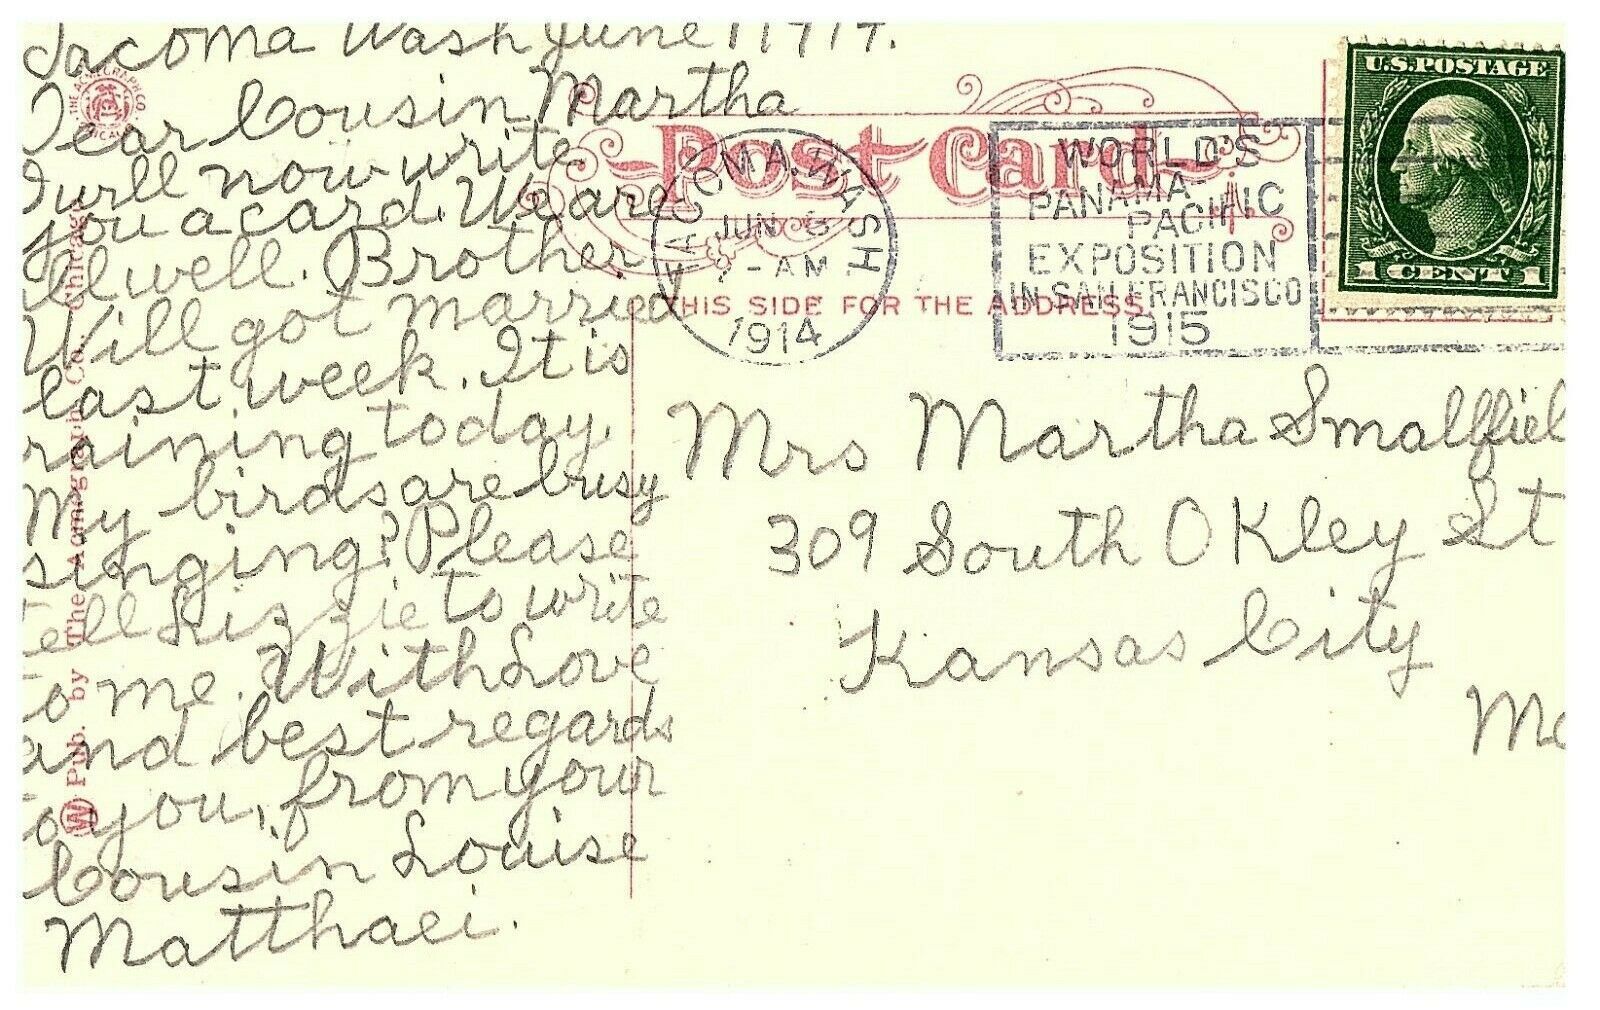 Tacoma Wash June 1 1914.
Dear Cousin Martha
I will now write
you a card. We are
all well. Brother
Will got married
last week. It is
raining today.
My birds are busy
singing? Please
tell Lizzie to write
to me. With Love
and best regards
to you, from your
Cousin Louise
Matthaei.
THE ACMEGRAPH CO.
CHICAGO
W Pub. by The Acmegraph Co., Chicago
Post Card
THIS SIDE FOR THE ADDRESS.
TACOMA, WASH
JUN 3
-AM
1914
WORLD'S
PANAMA-
PACIFIC
EXPOSITION
IN SAN FRANCISCO
1915
U.S. POSTAGE
1 CENT 1
Mrs Martha Smallfiel
309 South Okley St
Kansas City
Mo